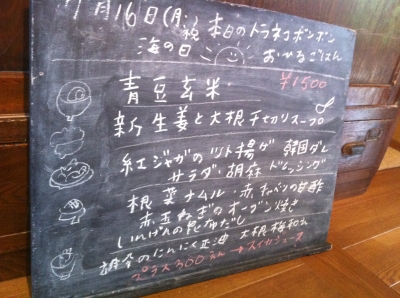 7月16日(月)祝 本日のトラネコボンボン
海の日 おひるごはん
青豆玄米 ¥1500
新生姜と大根千切りスープ
紅ジャガのソト揚ゲ 韓国ダレ
サラダ・胡麻ドレッシング
根菜ナムル・赤キャベツの甘酢
赤玉ねぎのオーブン焼き
いんげんの昆布だし
胡瓜のにんにく正油 大根梅和え
プラス300円 → スイカジュース